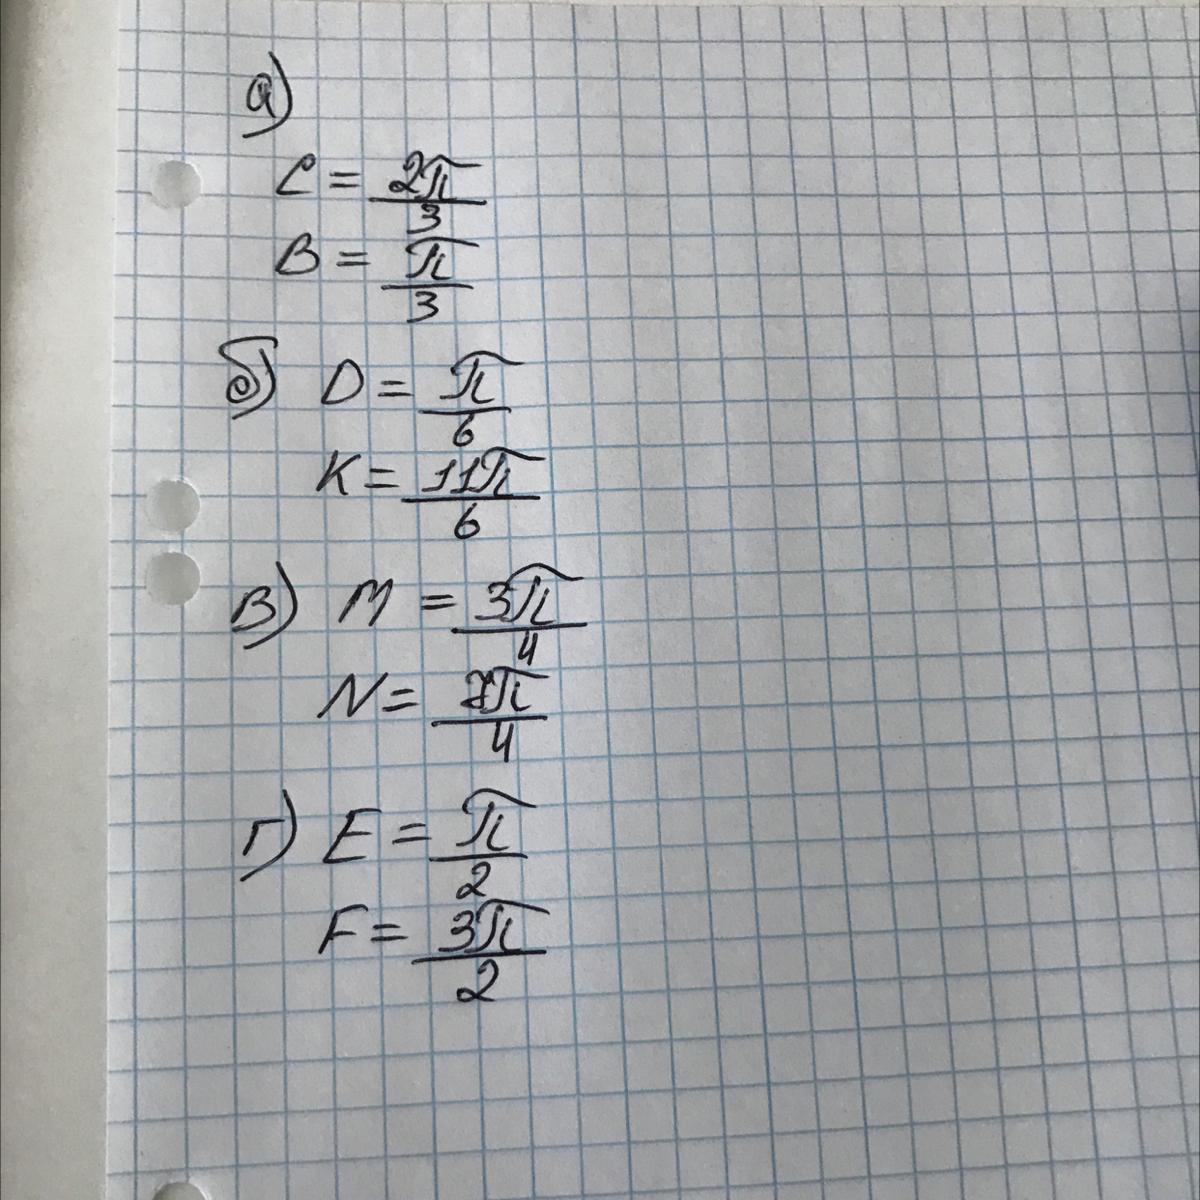 а)
C = 2π/3
B = π/3
б) D = π/6
K = 11π/6
в) M = 3π/4
N = 7π/4
г) E = π/2
F = 3π/2